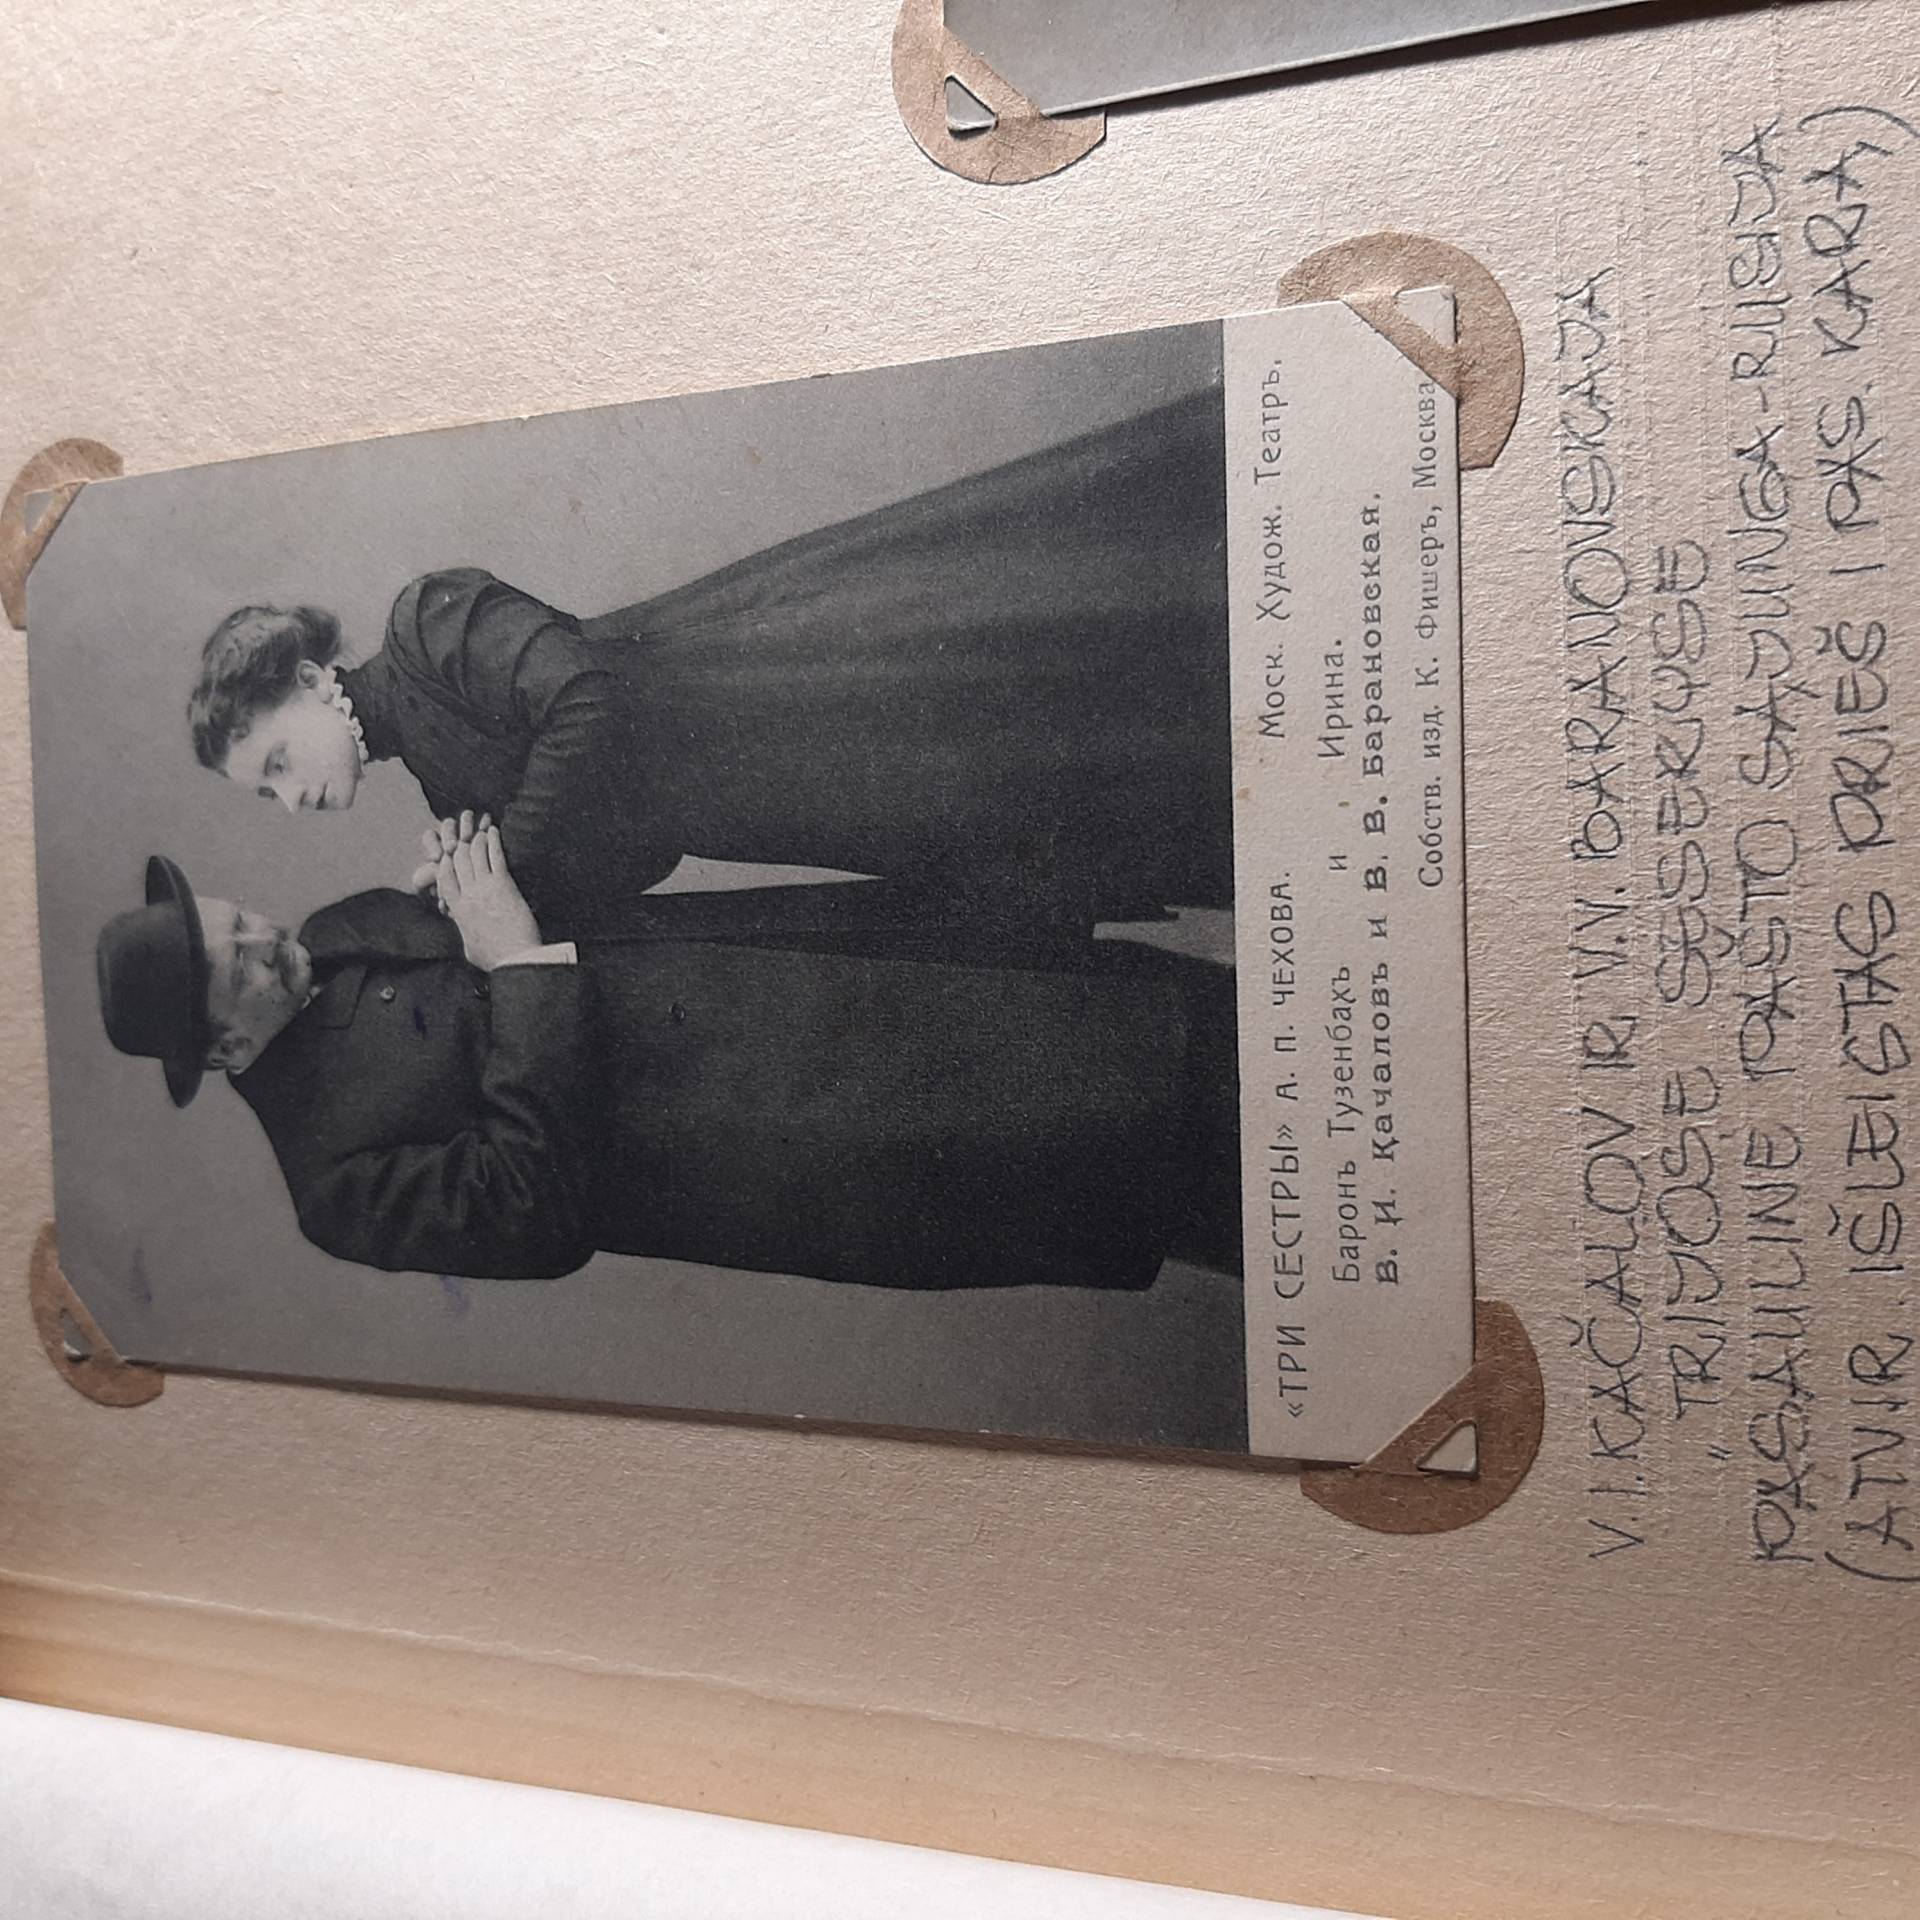 «ТРИ СЕСТРЫ» А. П. ЧЕХОВА. Моск. Худож. Театръ.
Баронъ Тузенбахъ и Ирина.
В. И. Качаловъ и В. В. Барановская.
Собств. изд. К. Фишеръ, Москва
V. I. KAČALOV IR V.V. BARANOVSKAJA
"TRIJOSE SESERYSE
PASAULINĖ PAŠTO SĄJUNGA-RUSIJA
(ATVIR. IŠLEISTAS PRIEŠ I PAS. KARĄ)